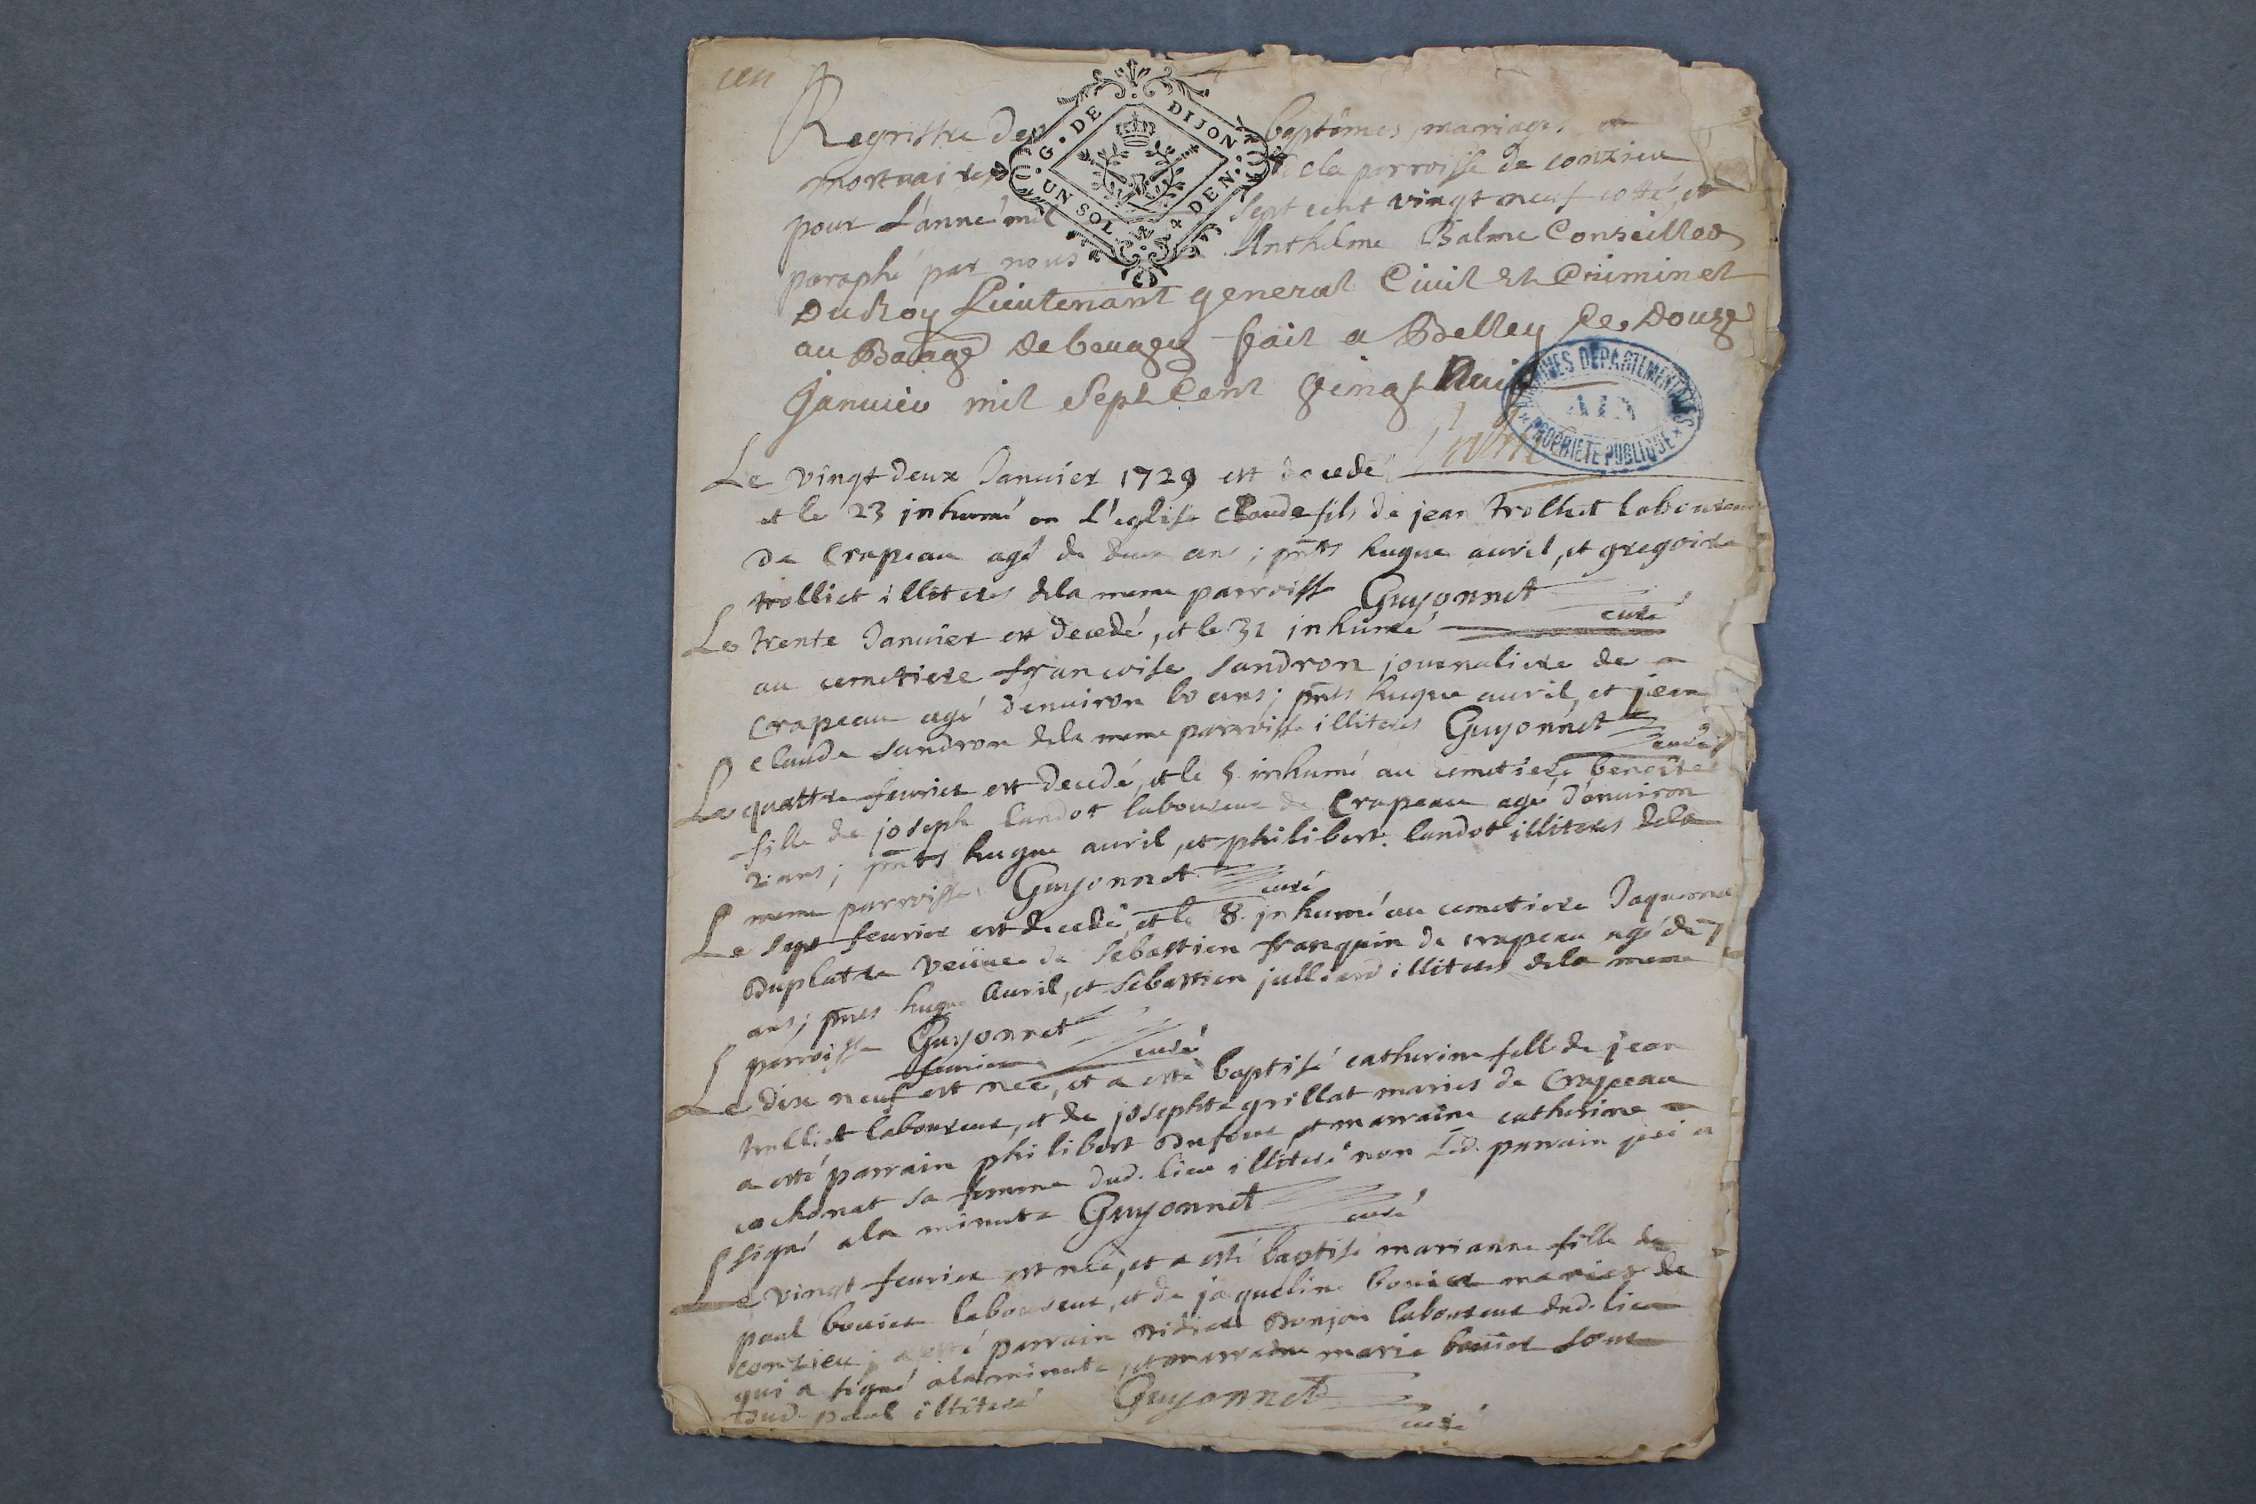 Regristre des baptêmes, mariages, et
mortuaires de la parroisse de conzieu
pour L'année mil sept cent vingt neuf cotté, et
paraphé par nous Anthelme Balme Conseiller
Du Roy Lieutenant general Civil et Criminel
au Baage De beugey fait a Belley Le Douze
Janvier mil Sept Cent vingt Neuf
G. DE DIJON
UN SOL 4 DEN.
ARCHIVES DEPARTEMENTALES
AIN
PROPRIETE PUBLIQUE
Le vingt deux Janvier 1729 est decedé
et le 23 inhumé en L'eglise Claude fils de jean trolliet laboureur
de Crapeau agé de deux ans ; pnts hugue auril, et gregoire
trolliet illiteres dela meme parroisse Guyonnet curé
Le trente Janvier est decedé, et le 31 inhumé
au cemetiere francoise sandron journaliere de
Crapeau agé d'environ 60 ans ; pnts hugue auril, et jean
claude sandron dela meme parroisse illiteres Guyonnet curé
Le quattre feurier est decedé, et le 5 inhumé au cemetiere benoite
fille de joseph landot laboureur de Crapeau agé d'environ
2 ans ; pnts hugue auril, et philibert landot illiteres dela
meme parroisse Guyonnet curé
Le sept feurier est decedé, et le 8. inhumé au cemetiere Jaquema
Duplatre veüue de Sebastien franquin de crapeau agé de 7
ans ; pnts hugue Auril, et sebastien julliard illiteres dela meme
parroisse Guyonnet curé
feurier
Le dix neuf est née, et a esté baptisé catherine fille de jean
trolliet laboureur, et de josephte grillat mariés de Crapeau
a esté parrain philibert Dufour et marraine catherine
cochonat sa femme dud. lieu illiteré non Led. parrain qui a
signé ala minute Guyonnet curé
Le vingt feurier est née, et a esté baptisé marianne fille de
paul bouier laboureur, et de jaqueline bouier mariés de
conzieu ; a esté parrain Didier Donjon laboureur dud. lieu
qui a signé ala minute, et marraine marie bouier soeur
dud. paul illiteré Guyonnet curé